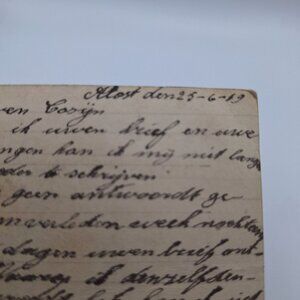 Alost den 25-6-19
ven Cozijn
ik uwen brief en uwe
ngen kan ik mij niet lange
eder te schrijven
geen antwoordt ge
an verleden week nochtans
dagen uwen brief ont-
ik denzelfden